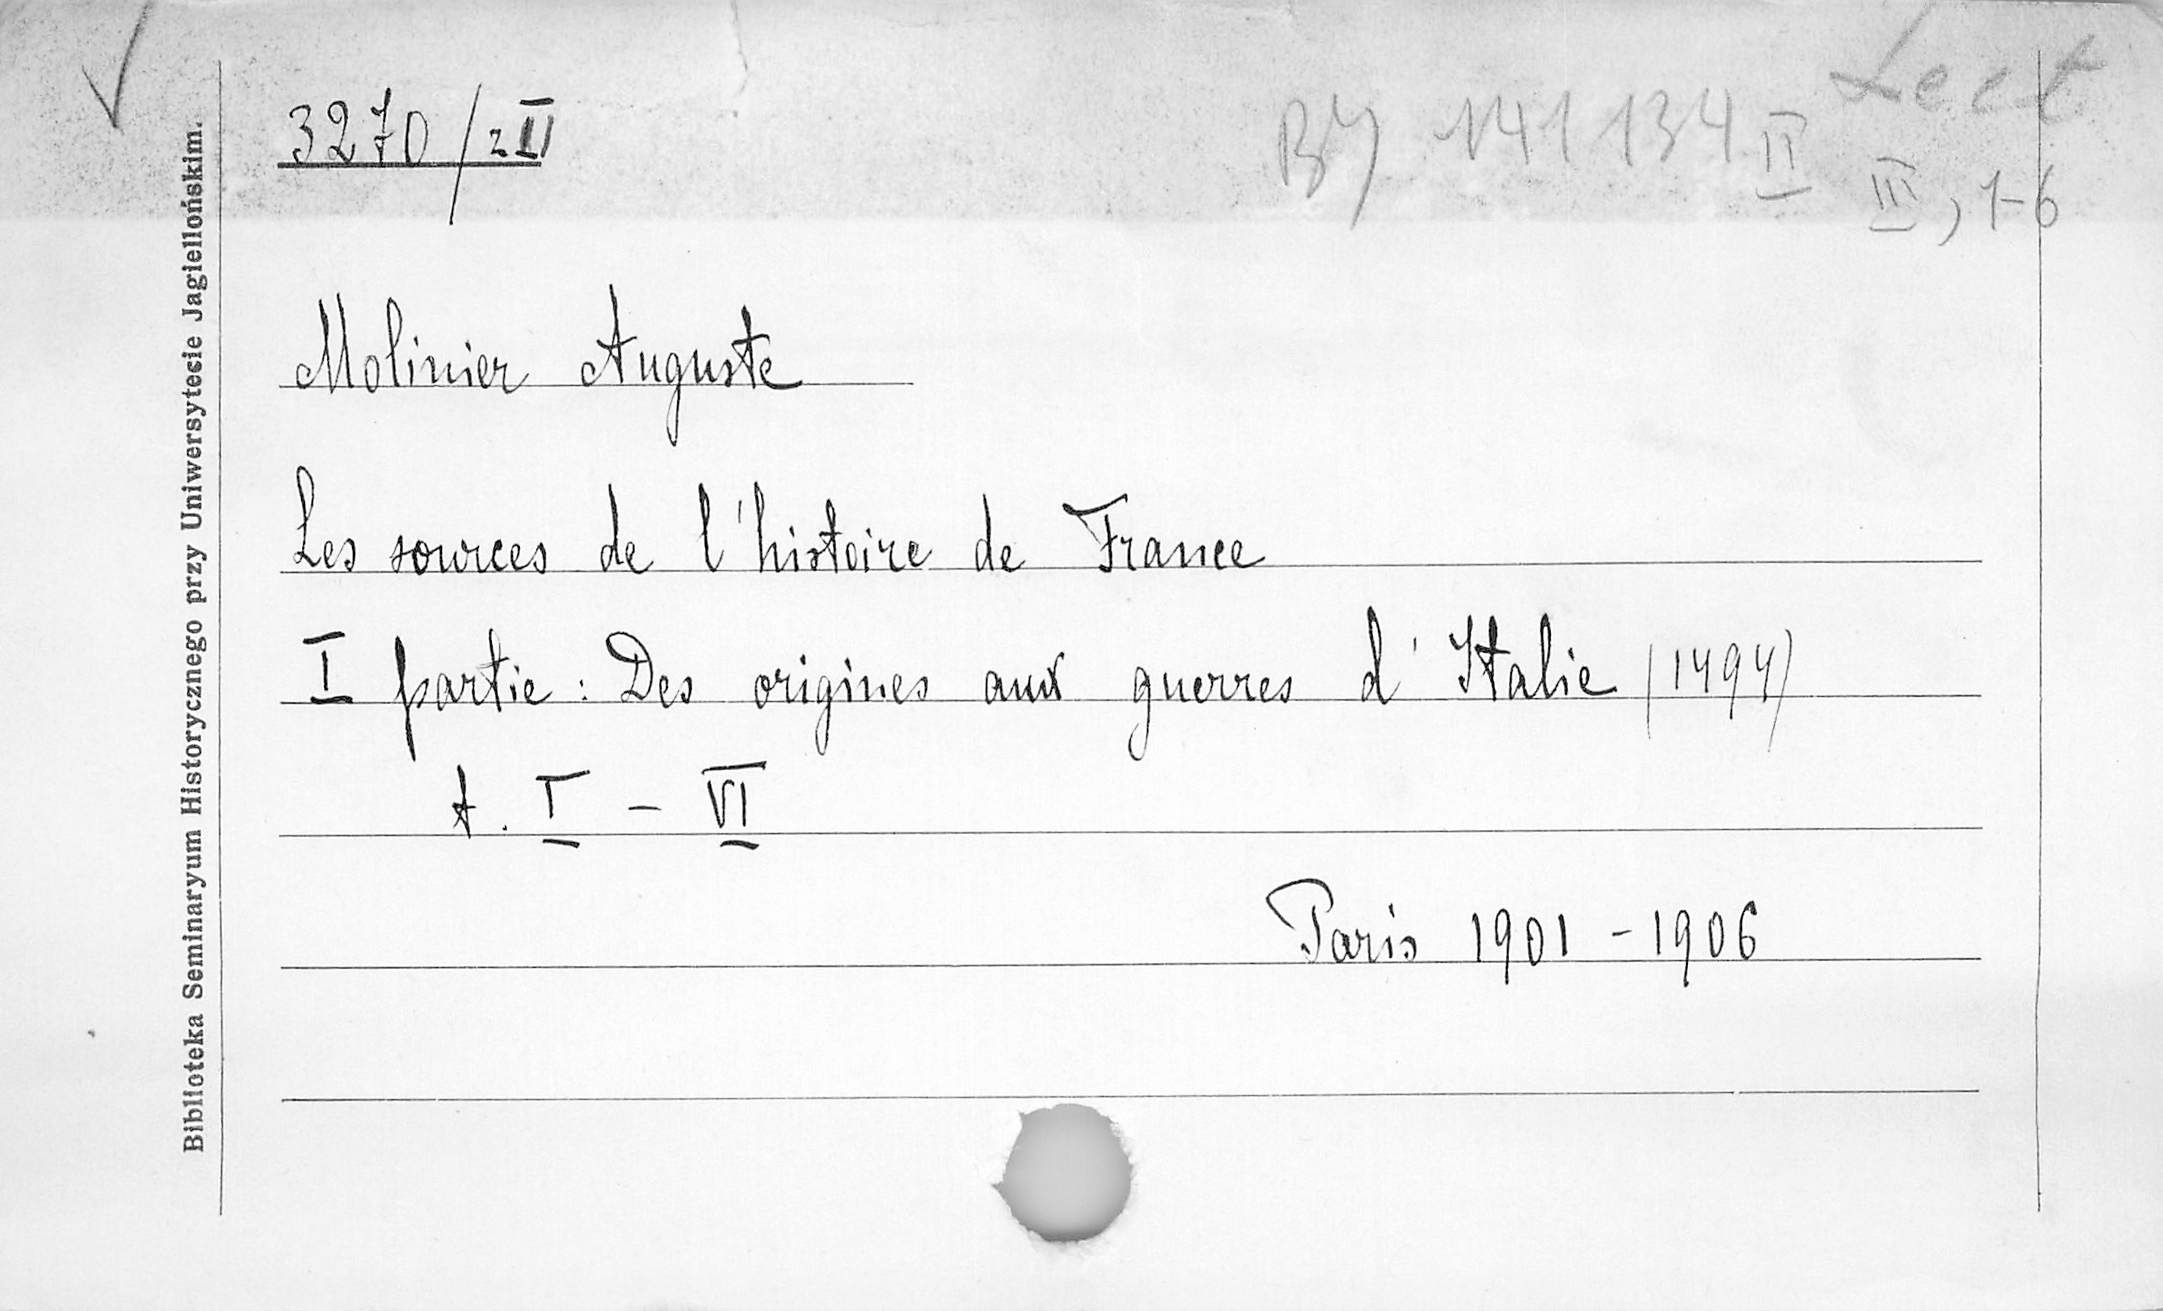 3270/z II
BJ 141134 II Lect
III, 1-6
Molinier Auguste
Les sources de l'histoire de France
I partie: Des origines aux guerres d'Italie (1494)
t. I - VI
Paris 1901-1906
Biblioteka Seminaryum Historycznego przy Uniwersytecie Jagiellońskim.